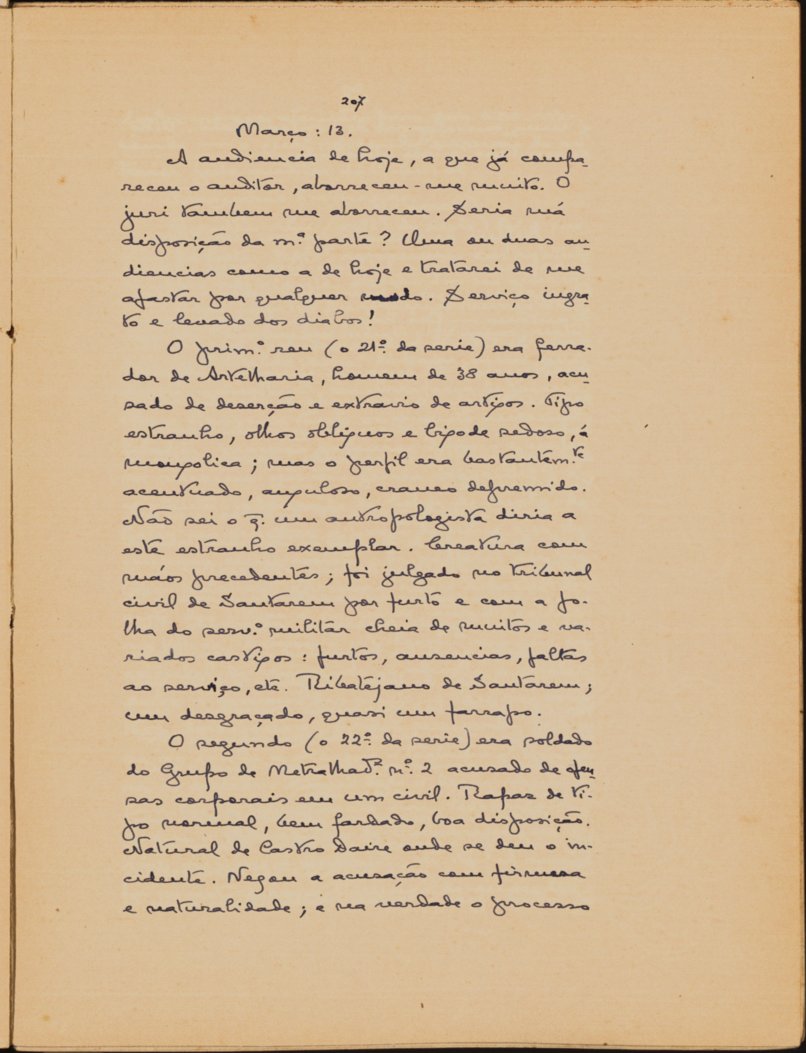 207
Março : 13.
A audiencia de hoje, a que já compa-
receu o auditor, aborreceu-me muito. O
juri tambem me aborreceu. Seria má
disposição da m.ª parte? Uma ou duas au-
diencias como a de hoje e tratarei de me
afastar por qualquer modo. Serviço ingra-
to e levado dos diabos!
O prim.º reu (o 21º. da serie) era ferra-
dor de Artelharia, homem de 38 anos, acu-
sado de deserção e extravio de artigos. Tipo
estranho, olhos obliquos e bigode sedoso, á
mongolica; mas o perfil era bastantem.te
acentuado, anguloso, craneo deprimido.
Não sei o q. um antropologista diria a
este estranho exemplar. Creatura com
máos precedentes; foi julgado no tribunal
civil de Santarem por furto e com a fo-
lha do serv.º militar cheia de muitos e va-
riados castigos: furtos, ausencias, faltas
ao serviço, etc. Ribatejano de Santarem;
um desgraçado, quasi um farrapo.
O segundo (o 22º. da serie) era soldado
do Grupo de Metralhad.as n.º 2 acusado de ofen-
sas corporais em um civil. Rapaz de ti-
po normal, bem fardado, boa disposição.
Natural de Castro Daire onde se deu o in-
cidente. Negou a acusação com firmesa
e naturalidade; e na verdade o processo